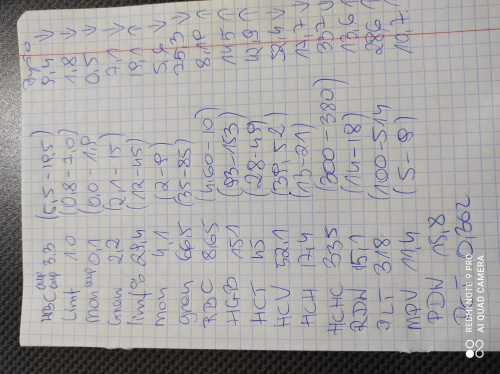 HBC 3.3 (5,5 - 19,5) 9,4 ↓
Limf 1.0 (0.8 - 7.0) 1,8
Mon 0,1 (0.0 - 1,9) 0,5
Gran 2.2 (2,1 - 15) 7,1
limf% 29,4 (12 - 45) 19,1
mon 4,1 (2 - 9) 5,6
gran 66.5 (35 - 85) 75,3
RBC 865 (4.60 - 10) 8.10
HGB 151 (93 - 153) 145
HCT 45 (28 - 49) 42,9
HCV 52,1 (39, 52) 52,4
HCH 7,4 (13 - 21) 17,7
HCHC 335 (300 - 380) 337
RDN 15,1 (14 - 18) 13,6
PLT 318 (100 - 514) 286
MPV 11,4 (5 - 9) 10,7
PDN 15,8
0,362
REDMI NOTE 9 PRO
AI QUAD CAMERA